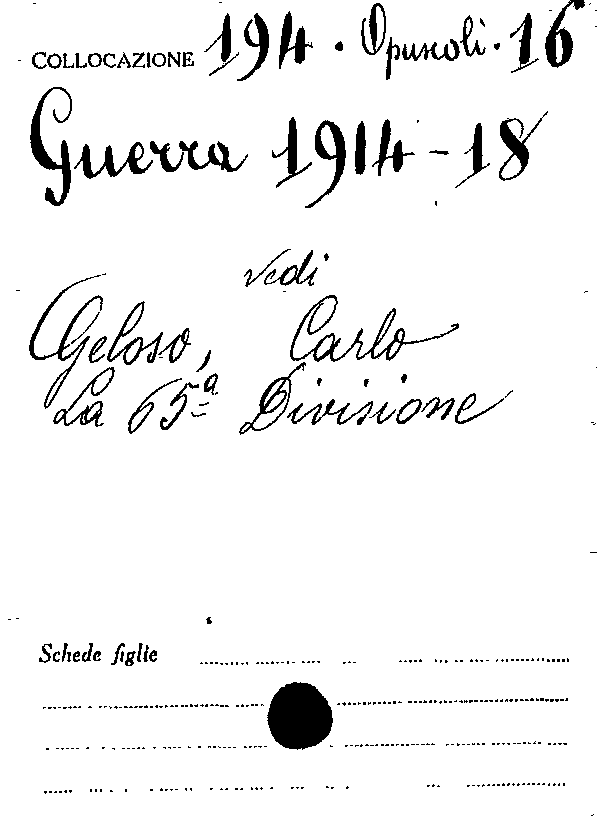 COLLOCAZIONE 194 . Opuscoli . 16
Guerra 1914-18
vedi
Geloso, Carlo
La 65ª Divisione
Schede figlie